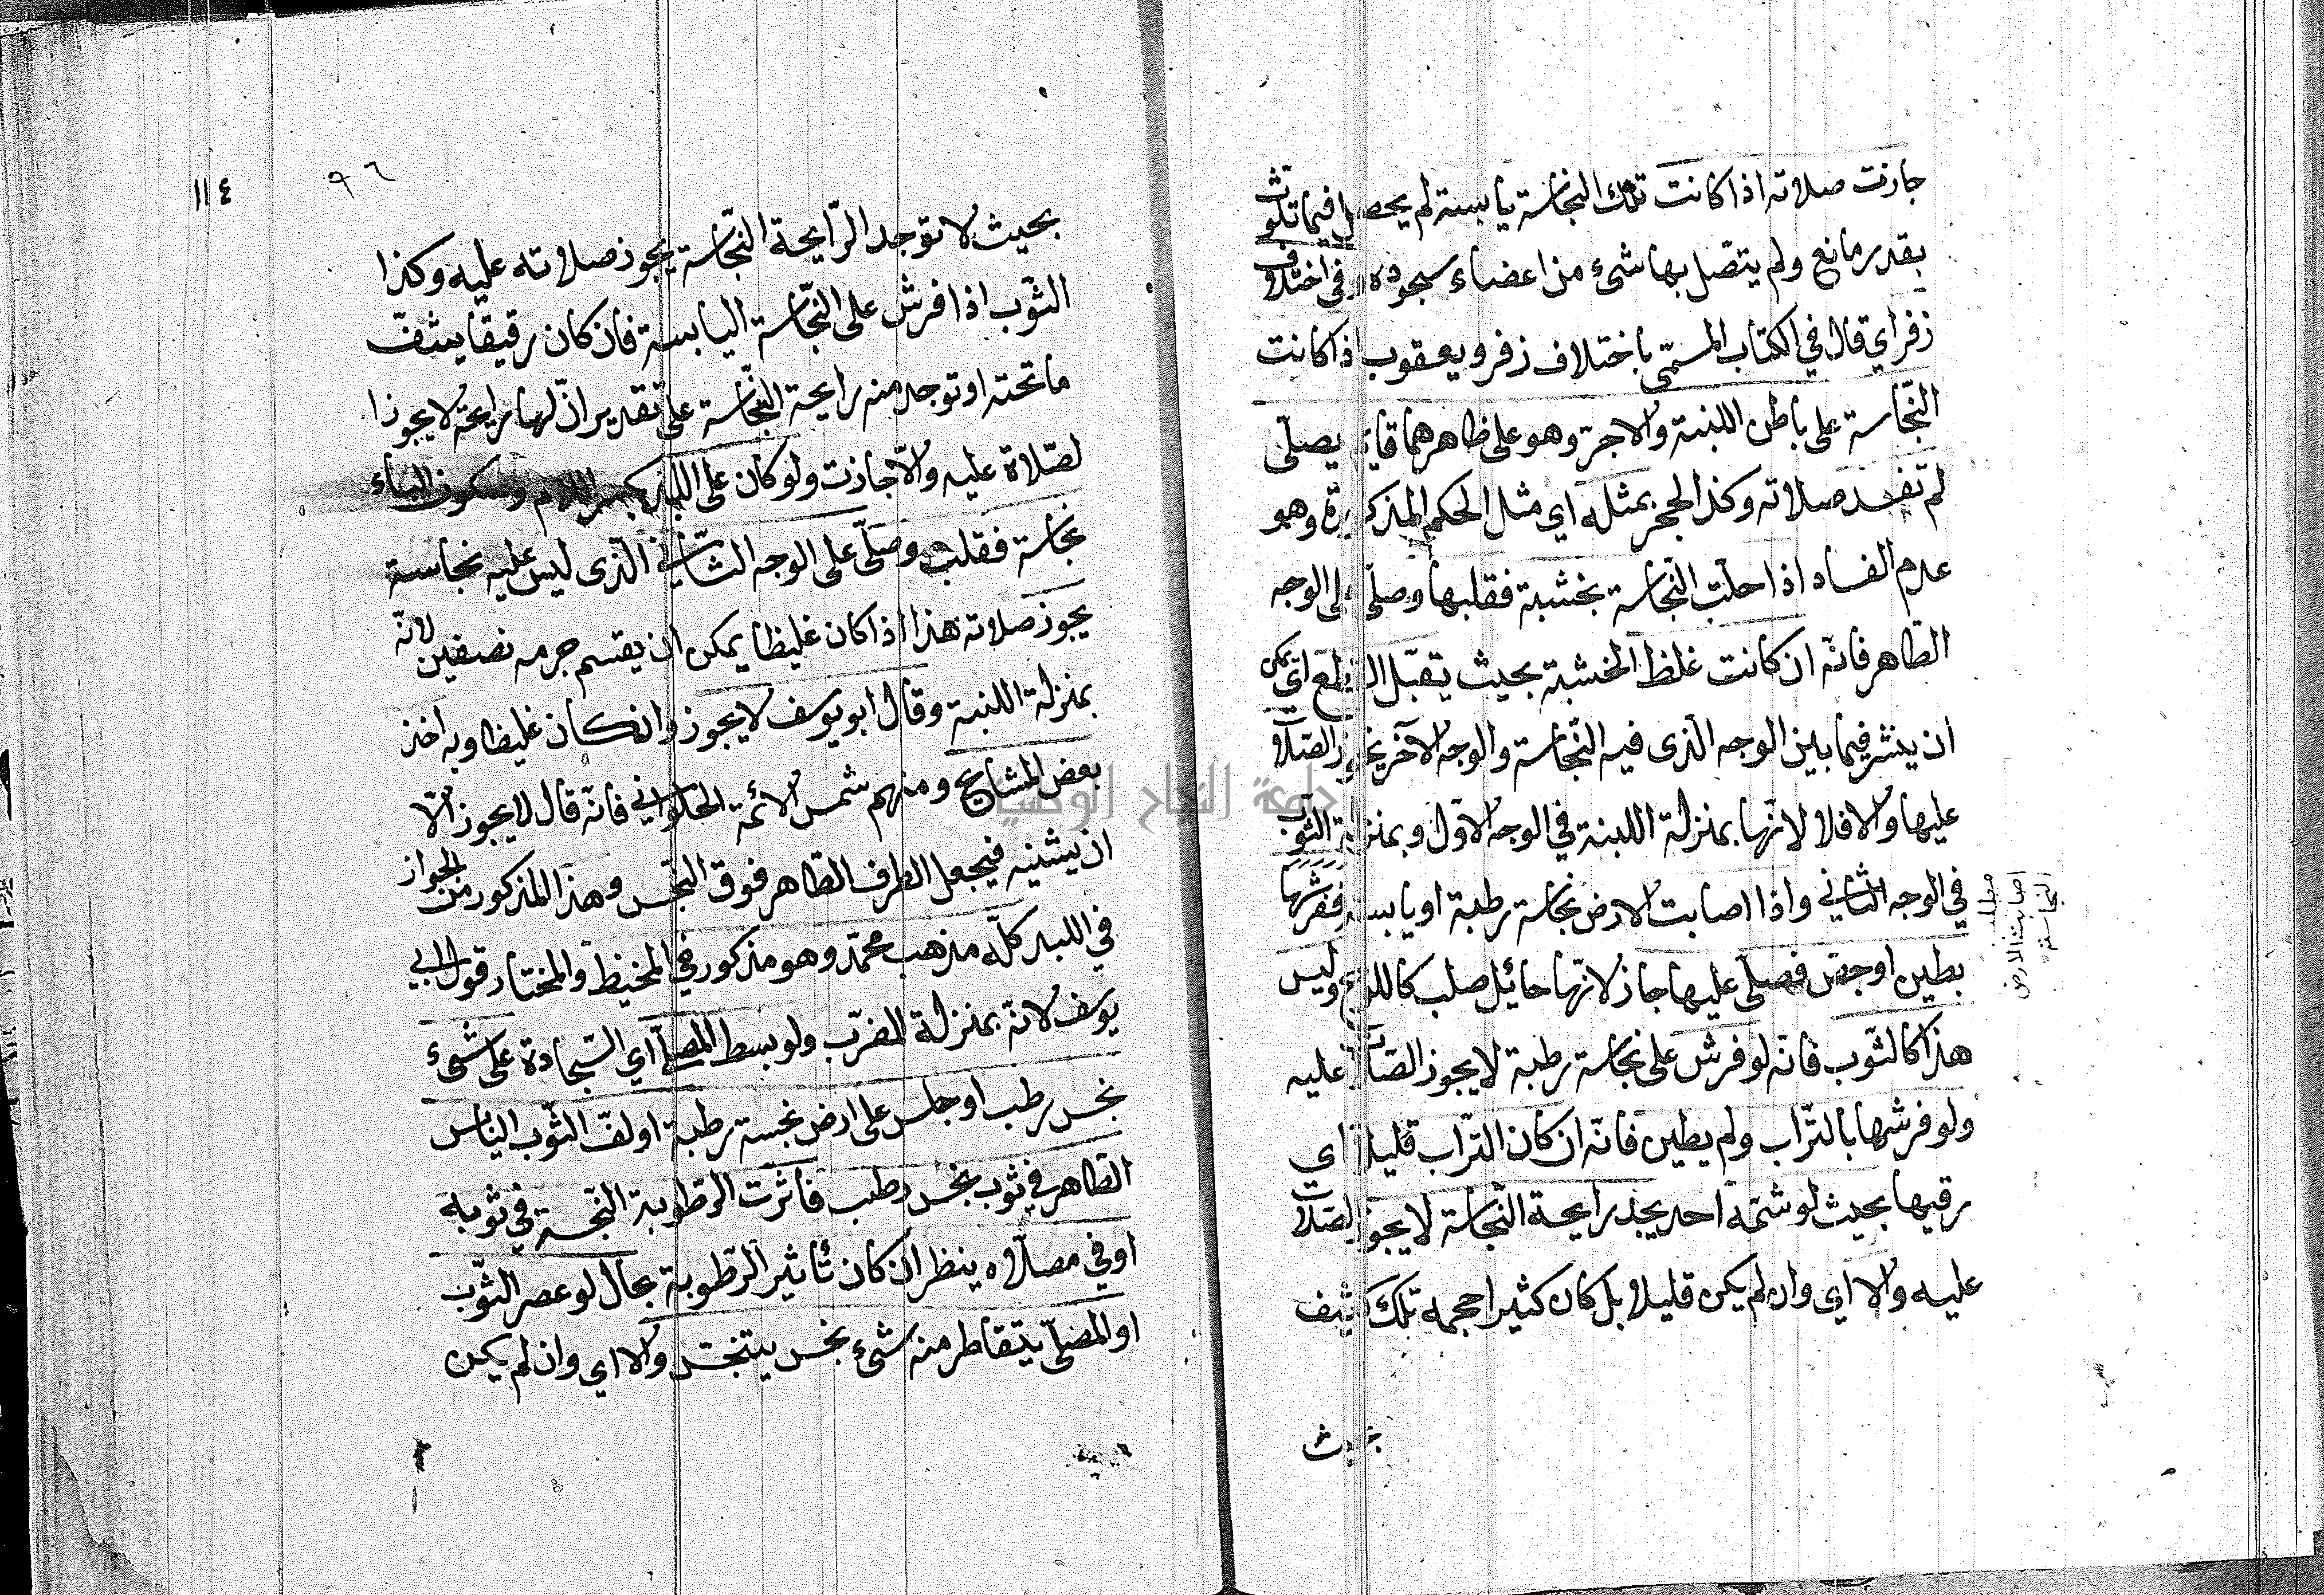 جازت صلاته اذا كانت تلك النجاسة يابسة لم يحصل فيما تلوث
بقدر مانع ولم يتصل بها شئ من اعضاء سجوده وفي اختلاف
زفر اي قال في الكتاب المسمى باختلاف زفر ويعقوب اذا كانت
النجاسة على باطن اللبنة والاجر وهو على ظاهرهما قايم يصلى
لم تفسد صلاته وكذا الحجر بمثله اي مثل الحكم المذكورة وهو
عدم الفساد اذا حلت النجاسة بخشبة فقلبها وصلى على الوجه
الطاهر فانه ان كانت غلظ الخشبة بحيث تقبل القطع اي يمكن
ان ينشر فيما بين الوجه الذى فيه النجاسة والوجه الآخر يجوز الصلاة
عليها والا فلا لانها بمنزلة اللبنة في الوجه الاول وبمنزلة الثوب
في الوجه الثاني واذا اصابت الارض نجاسة رطبة او يابسة ففرشها
بطين او جص فصلى عليها جاز لانها حائل صلب كاللوح وليس
هذا كالثوب فانه لو فرش على نجاسة رطبة لا يجوز الصلاة عليه
ولو فرشها بالتراب ولم يطين فانه ان كان التراب قليلا اي
رقيها بحيث لو شمه احد يجد رايحة النجاسة لا يجوز الصلاة
عليه والا اي وان لم يكن قليلا بل كان كثيرا حجمه تلك كثيف
بحيث
مطلب
اصابت الارض
النجاسة
٩٦
١١٤
بحيث لا توجد الرايحة النجاسة يجوز صلاته عليه وكذا
الثوب اذا فرش على النجاسة اليابسة فان كان رقيقا يشف
ما تحته او توجد منه رايحة النجاسة على تقدير ان لها رايحة لا يجوز ا
لصلاة عليه والا جازت ولو كان على اللبد بكسر اللام وسكون الباء
نجاسة فقلب وصلى على الوجه الثاني الذى ليس عليه نجاسة
يجوز صلاته هذا اذا كان غليظا يمكن ان يقسم جرمه نصفين لانه
بمنزلة اللبنة وقال ابو يوسف لا يجوز وان كان غليظا وبه اخذ
بعض المشايخ ومنهم شمس الائمة الحلواني فانه قال لا يجوز الا
ان يثنيه فيجعل الطرف الطاهر فوق النجس وهذا المذكور من الجواز
في اللبد كله مذهب محمد وهو مذكور في المحيط والمختار قول ابي
يوسف لانه بمنزلة المضرب ولو بسط المصلى اي السجادة على شئ
نجس رطب او جلس على ارض نجسة رطبة او لف الثوب اليابس
الطاهر في ثوب نجس رطب فاثرت الرطوبة النجسة في ثوبه
او في مصلاه ينظر ان كان تاثير الرطوبة بحال لو عصر الثوب
او المصلى يتقاطر منه شئ نجس يتنجس والا اي وان لم يكن
جامعة النجاح الوطنية